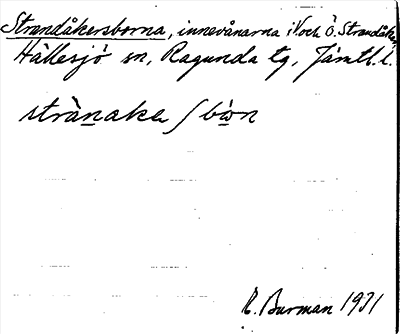 Strandåkersborna, innevånarna i V. och Ö. Strandåker,
Hällesjö sn, Ragunda tg, Jämtl. l.
strànake / bòn
R. Burman 1931